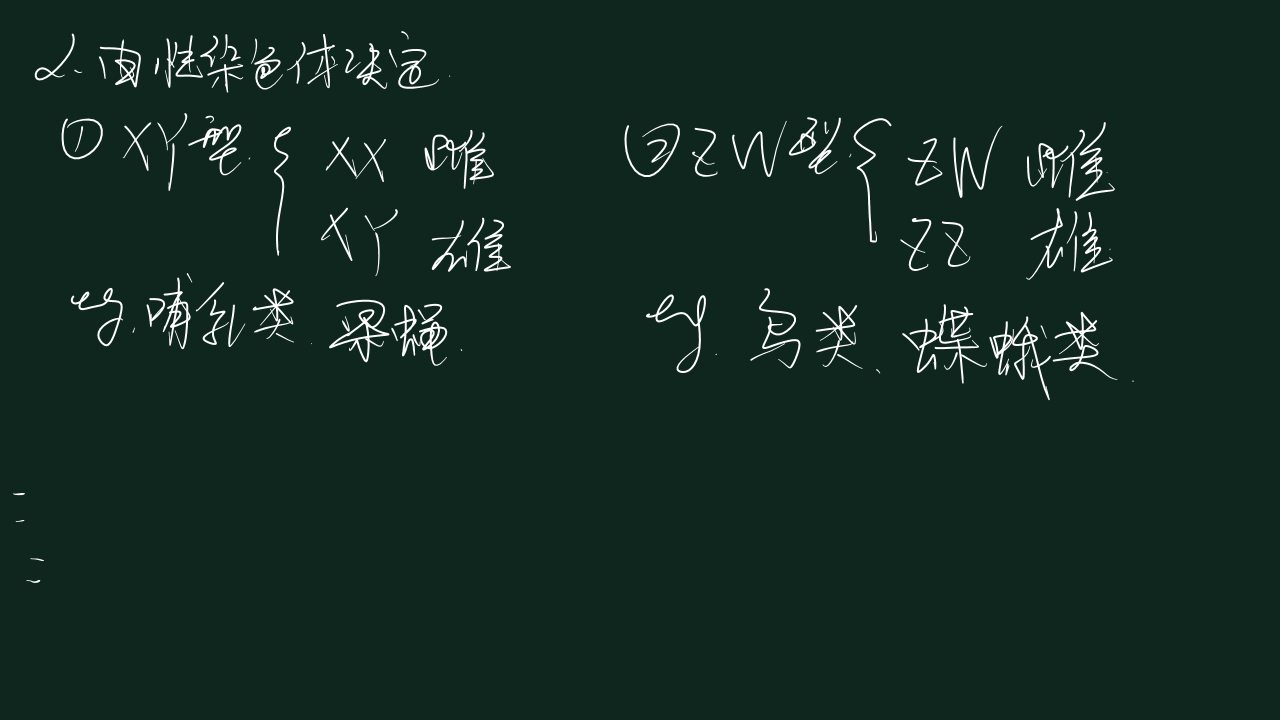 2. 由性染色体决定.
① XY型 { XX 雌
XY 雄
eg. 哺乳类. 果蝇.
② ZW型 { ZW 雌
ZZ 雄
eg. 鸟类、蝶蛾类.